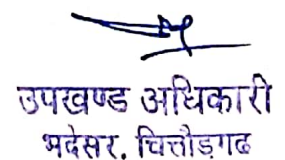 उपखण्ड अधिकारी
भदेसर, चित्तौड़गढ